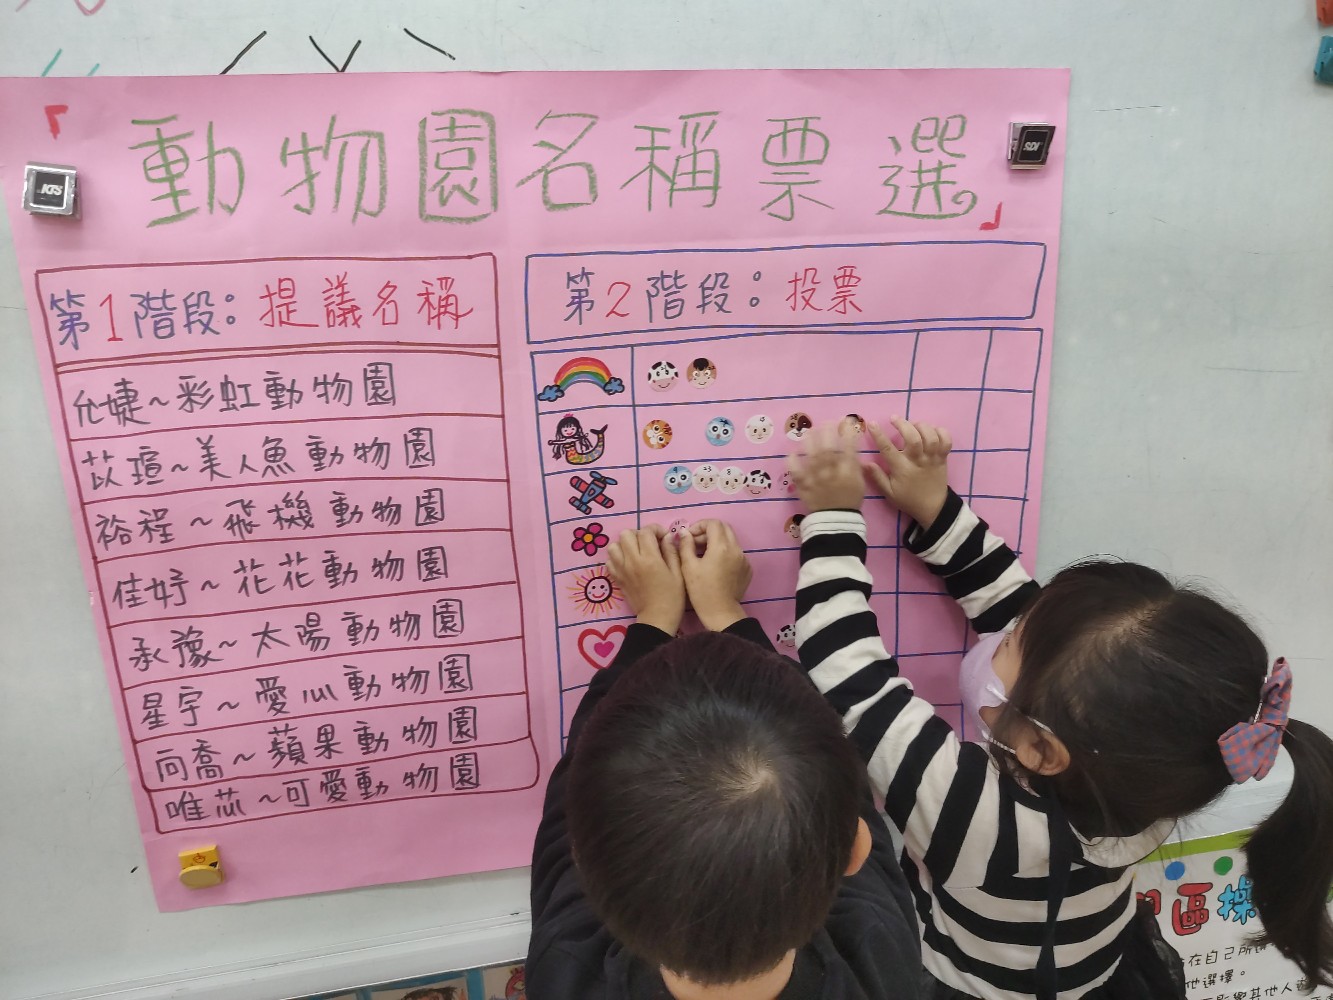 「動物園名稱票選。」
第1階段：提議名稱
允婕~彩虹動物園
苡瑄~美人魚動物園
裕程~飛機動物園
佳妤~花花動物園
承豫~太陽動物園
星宇~愛心動物園
向喬~蘋果動物園
唯苡~可愛動物園
第2階段：投票
KTS
SDI
區操
在自己所選
他選擇。